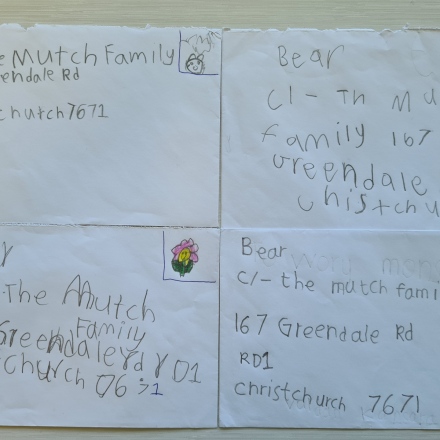 e Mutch Family
endale Rd
church 7671
Bear
C/- Th Mu
Family 167
Greendale
Chistchu
y
The Mutch
Family
Greendale Yd
church
Bear
C/- the mutch fami
167 Greendale Rd
RD1
christchurch 7671